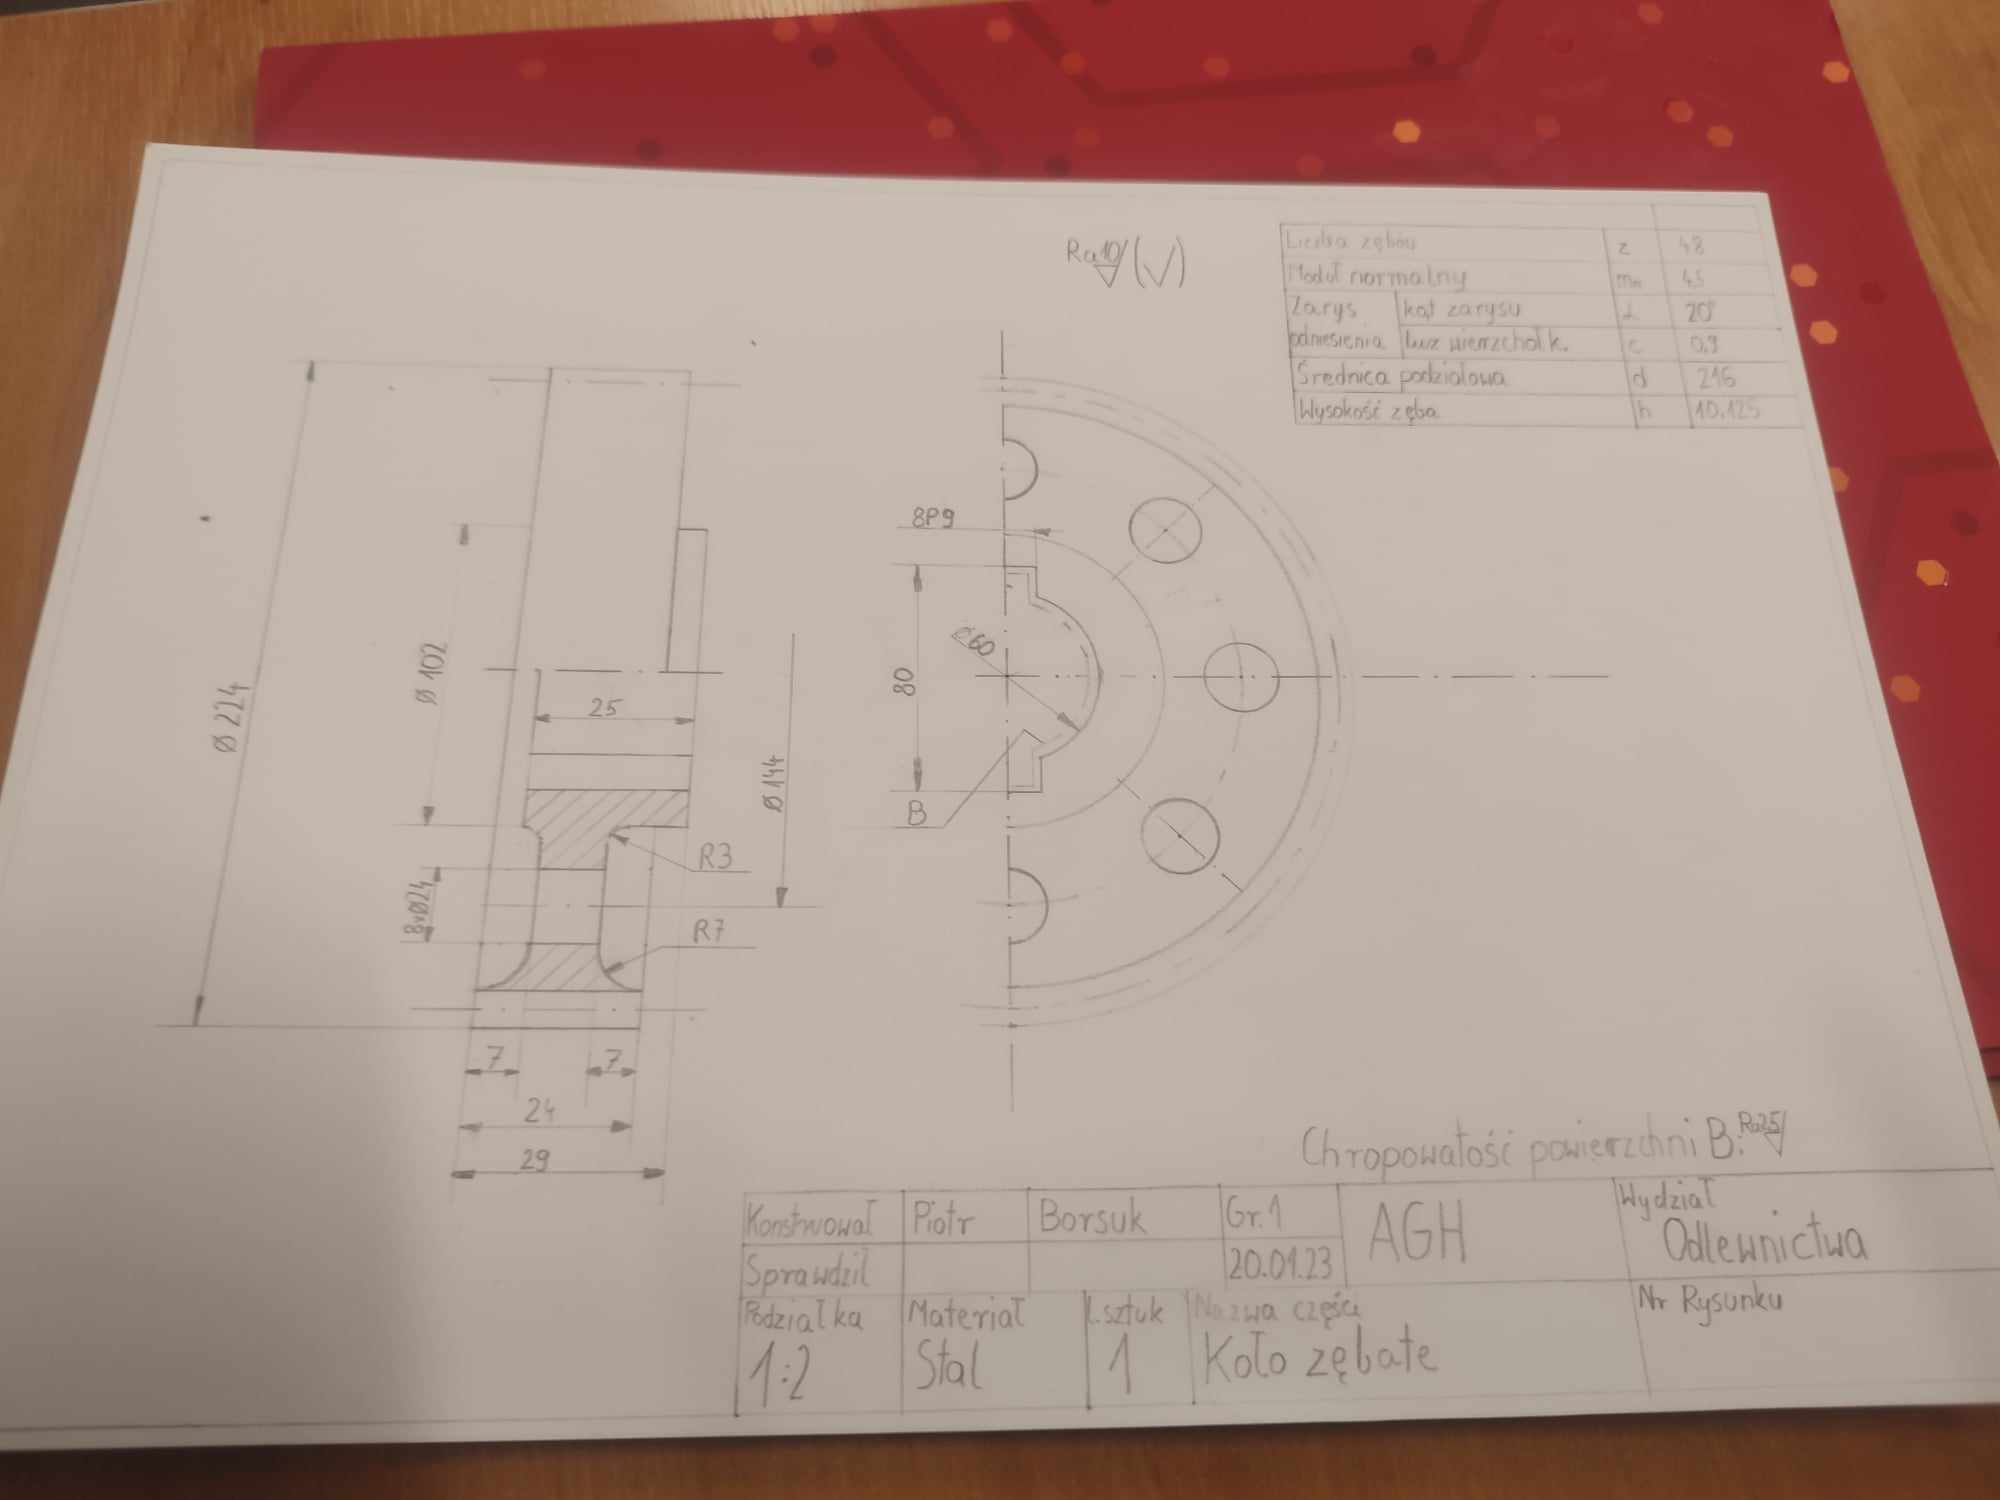 Ra10/(√)
Liczba zębów z 48
Moduł normalny mn 4,5
Zarys odniesienia kąt zarysu α 20°
luz wierzchołk. c 0,9
Średnica podziałowa d 216
Wysokość zęba h 10,125
Ø 224
Ø 102
25
Ø 144
8xØ24
R3
R7
7
7
24
29
8P9
80
Ø60
B
Chropowatość powierzchni B: Ra2,5
Konstruował Piotr Borsuk Gr.1
Sprawdził 20.01.23
AGH
Wydział
Odlewnictwa
Podziałka
1:2
Materiał
Stal
L.sztuk
1
Nazwa części
Koło zębate
Nr Rysunku